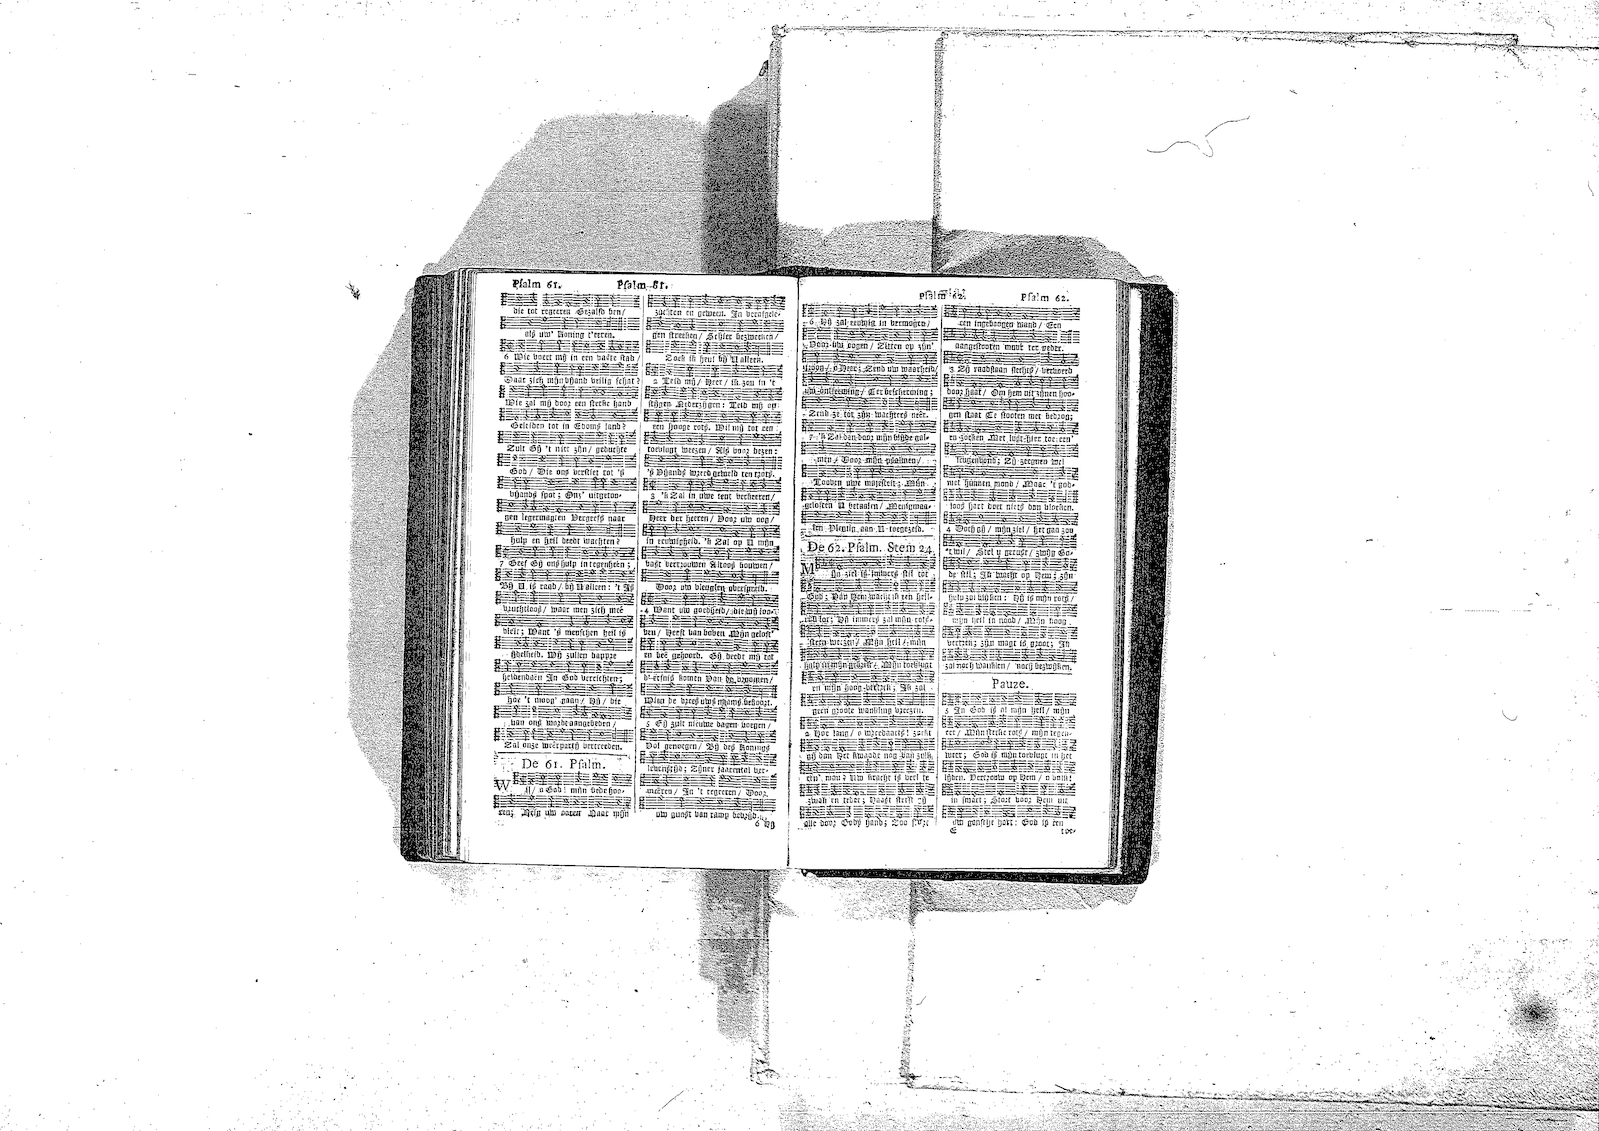 Psalm 61.
die tot regeeren Gezalfd ben/
als uw' Koning t'eeren.
6 Wie voert mij in een vaste stad/
Daar zich mijn vijand veilig schat?
Wie zal mij door een sterke hand
Geleiden tot in Edoms land?
Zult Gij 't niet zijn/ geduchte
God/ Die ons verstiet tot 's
vijands spot; Onz' uitgetoo-
gen legermagten Vergeefs naar
hulp en heil deedt wachten?
7 Geef Gij ons hulp in tegenheên;
Bij U is raad/ bij U alleen: 't Is
vruchtloos/ waar men zich meê
vleit; Want 's menschen heil is
ijdelheid. Wij zullen dappre
heldendaân In God verrichten;
hoe 't moog' gaan/ Hij/ die
van ons wordt aangebeden/
Zal onze weêrpartij vertreeden.
De 61. Psalm.
Wil/ o God! mijn bede hoo-
ren; Neig uw ooren Naar mijn
Psalm 61.
zuchten en geween. In verafgele-
gen streeken/ Schier bezweeken/
Zoek ik heul bij U alleen.
2 Leid mij/ Heer/ ik zou in 't
stijgen Nederzijgen: Leid mij op
een hooge rots. Wil mij tot een
toevlugt weezen/ Als voor dezen:
's Vijands wreed geweld ten trots.
3 'k Zal in uwe tent verkeeren/
Heer der heeren/ Voor uw oog/
in eeuwigheid. 'k Zal op U mijn
vast vertrouwen Altoos bouwen/
Door uw vleuglen overspreid.
4 Want uw goedheid/ die wij loo-
ven/ Heeft van boven Mijn geloft'
en beê gehoord. Gij deedt mij tot
d' erfnis komen Van de vroomen/
Wien de vrees uws naams bekoort.
5 Gij zult nieuwe dagen voegen/
Vol genoegen/ Bij des Konings
levenstijd; Zijner jaarental ver-
meêren/ In 't regeeren/ Door
uw gunst van ramp bevrijd.
6 Hij
Psalm 62.
6 Hij zal eeuwig in vermogen/
Voor uw oogen/ Zitten op zijn'
troon/ o Heer; Zend uw waarheid/
uw ontferming/ Ter bescherming;
Zend ze tot zijn wachters neêr.
7 'k Zal dan door mijn blijde gal-
men/ Door mijn psalmen/
Looven uwe majesteit; Mijn
geloften U betaalen/ Menigmaa-
len Plegtig aan U toegezeid.
De 62. Psalm. Stem 24.
Mijn ziel is immers stil tot
God; Van Hem wacht ik een heil-
rijk lot; Hij immers zal mijn rots-
steen weezen/ Mijn heil/ mijn
hulp in mijn gebrek/ Mijn toevlugt
en mijn hoog vertrek; Ik zal
geen groote wankling vreezen.
2 Hoe lang/ o wreedaarts! zoekt
gij dan Het kwaade nog van zulk
een' man? Uw kracht is veel te
zwak en teder; Haast stort zij
alle door Gods hand; Zoo stort
Psalm 62.
een ingeboogen wand/ Een
aangestooten muur ter neder.
3 Zij raadslaan slechts/ vervoerd
door haat/ Om hem uit zijnen hoo-
gen staat Te stooten met bedrog;
en zoeken Met lust hier toe een'
leugenvond; Zij zeegnen wel
met hunnen mond/ Maar 't god-
loos hart doet niets dan vloeken.
4 Doch gij/ mijn ziel/ het gaa zoo
't wil/ Stel u gerust/ zwijg Go-
de stil; Ik wacht op Hem; zijn
hulp zal blijken: Hij is mijn rots/
mijn heil in nood/ Mijn hoog
vertrek; zijn magt is groot; Ik
zal noch wanklen/ noch bezwijken.
Pauze.
5 In God is al mijn heil/ mijn
eer/ Mijn sterke rots/ mijn tegen-
weer; God is mijn toevlugt in het
lijden. Vertrouw op Hem/ o volk!
in smart; Stort voor Hem uit
uw gansche hart: God is een
E
toe-